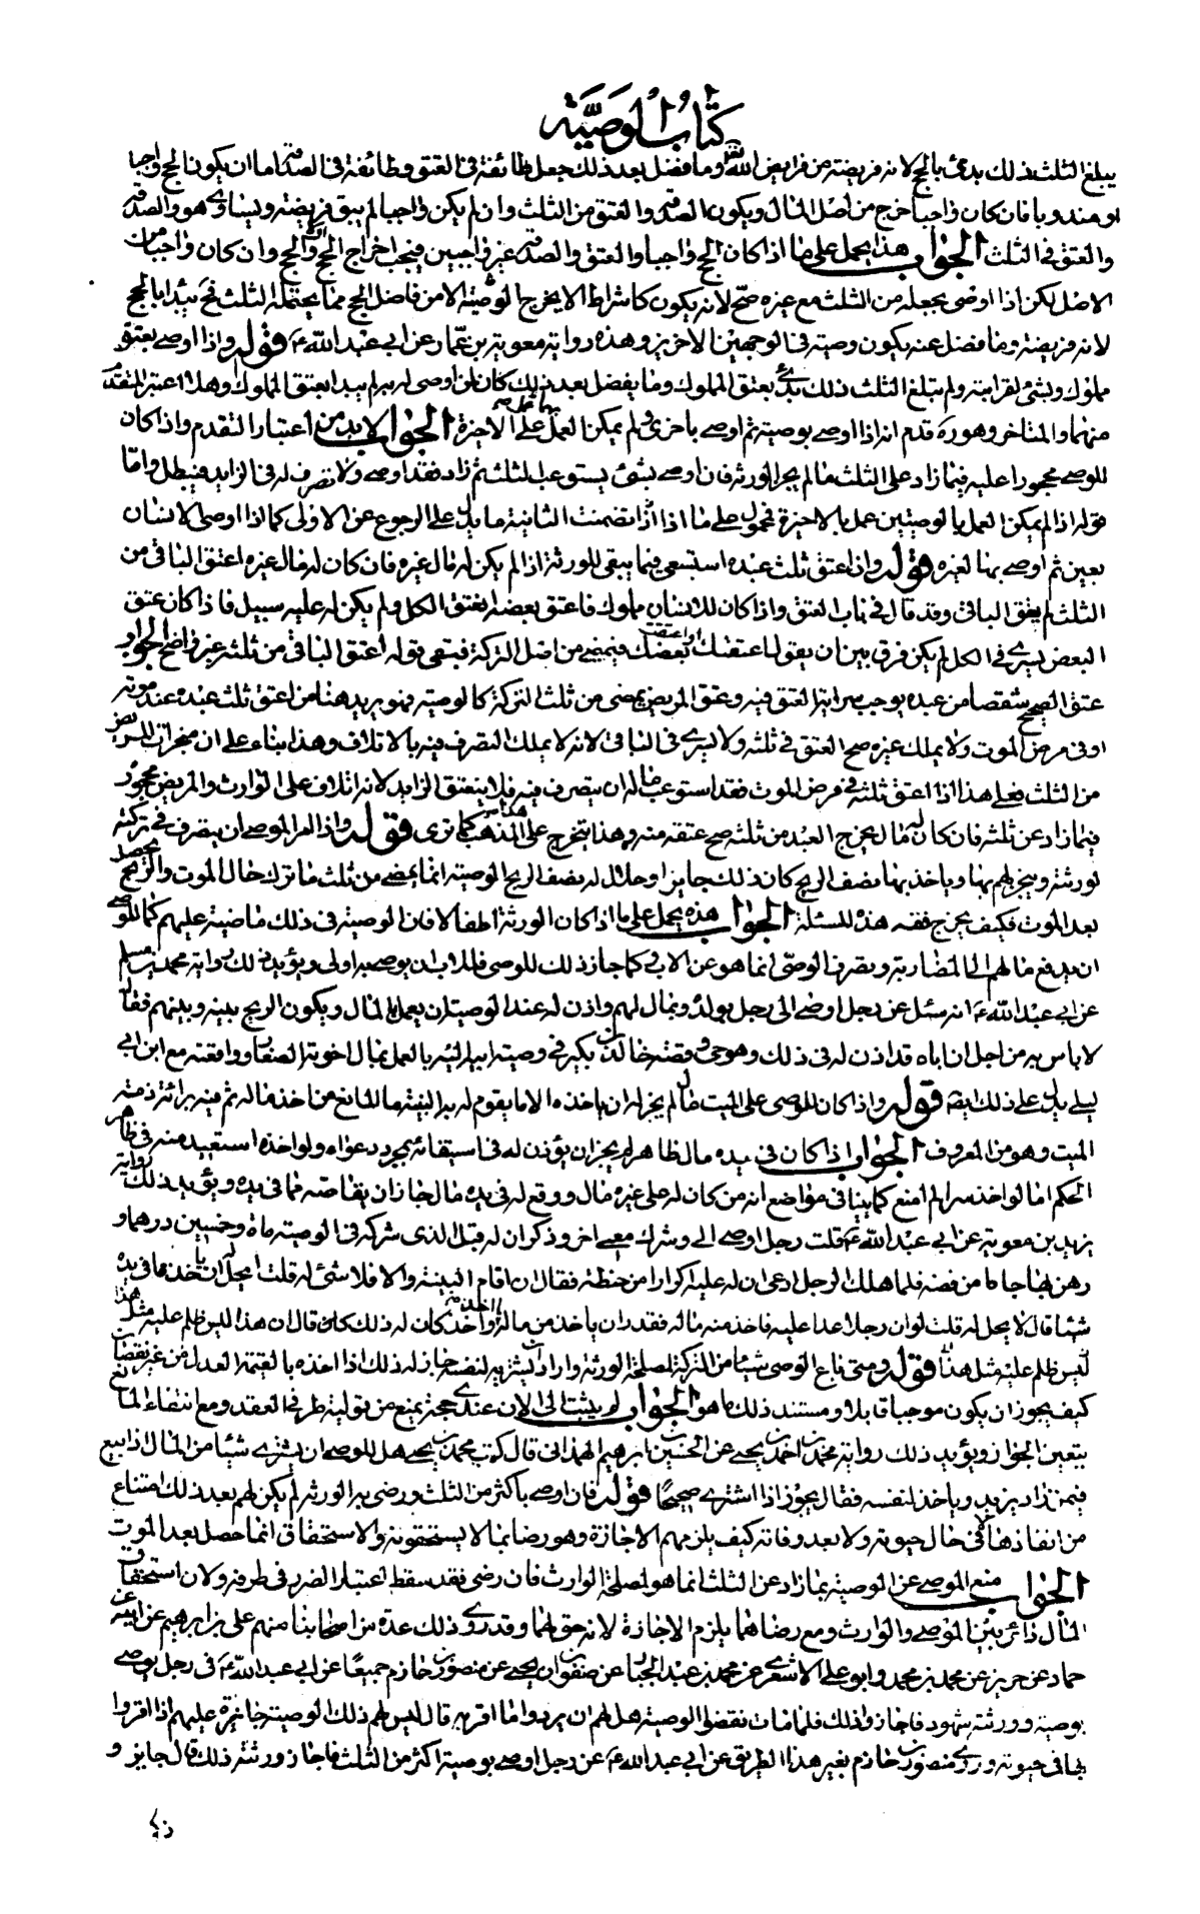 كتاب الوصية
يبلغ الثلث ذلك بدئ بالحج لانه فريضة من فرايض الله وما فضل بعد ذلك جعل طائفة في العتق وطائفة في الصدقة اما ان يكون الحج واجبا
او مندوبا فان كان واجبا خرج من اصل المال ويكون الصدقة والعتق من الثلث وان لم يكن واجبا لم يبق فريضة ويساوي هو والصدقة
والعتق في الثلث الجواب هذا يحمل على ما اذا كان الحج واجبا والعتق والصدقة غير واجبين فيجب اخراج الحج والحج وان كان واجبا من
الاصل لكن اذا اوصى بجعله من الثلث مع غيره صح لانه يكون كاشراط الا يخرج الوصية الا من فاضل الحج مما يحتمله الثلث فح يبدا بالحج
لانه فريضة وما فضل عنه يكون وصية في الوجهين الاخرين وهذه رواية معوية بن عمار عن ابي عبد الله ع قوله واذا اوصى بعتق
مملوك وبشئ لقرابته ولم تبلغ الثلث ذلك بدئ بعتق المملوك وما يفضل بعد ذلك كان لمن اوصى له به لم يبدا بعتق المملوك وهلا اعتبر المتقدم
منهما والمتاخر وهو ره قدم انه اذا اوصى بوصية ثم اوصى باخرى فلم يمكن العمل بهما عمل على الاخيرة الجواب لا بد من اعتبار التقدم واذا كان
الموصى محجورا عليه فيما زاد على الثلث ما لم يجز الورثة فان اوصى بشئ يستوعب الثلث ثم زاد فقد اوصى ولا تصرف له في الزايد فيبطل واما
قوله اذا لم يمكن العمل بالوصيتين عمل بالاخيرة فمحمول على ما اذا تضمنت الثانية ما يدل على الرجوع عن الاولى كما اذا اوصى الانسان
بعين ثم اوصى بها لغيره قوله واذا عتق ثلث عبده استسعى فيما يبقى للورثة اذا لم يكن له مال غيره فان كان له مال غيره اعتق الباقي من
الثلث لم يعتق الباقي وقد قال في باب العتق واذا كان للانسان مملوك فاعتق بعضه انعتق الكل ولم يكن له عليه سبيل فاذا كان عتق
البعض يسرى في الكل لم يكن فرق بين ان يقول اعتقتك او اعتقت بعضك فيمضي من اصل التركة فبقى قوله اعتق الباقي من ثلثه غير واضح الجواب
عتق الصحيح شقصا من عبده يوجب سراية العتق فيه وعتق المريض يمضى من ثلث التركة كالوصية فهو يريد هنا من اعتق ثلث عبده عند موته
او في مرض الموت ولا يملك غيره صح العتق في ثلثه ولا يسرى في الباقي لانه لا يملك التصرف فيه بالاتلاف وهذا بناء على ان منجزات المريض
من الثلث فعلى هذا اذا اعتق ثلثه في مرض الموت فقد استوعب ماله ان يتصرف فيه فلا ينعتق الزايد لانه اتلاف على الوارث والمريض محجور
فيما زاد عن ثلثه فان كان له مال يخرج العبد من ثلثه صح عتقه منه وهذا يتخرج على هذا المذهب كما ترى قوله واذا امر الموصى ان يتصرف في تركته
لورثته ويتجر لهم بها وياخذ بها نصف الربح كان ذلك جايزا وحلال له نصف الربح الوصية انما يمضي من ثلث ما ترك حال الموت والربح يحصل
بعد الموت فكيف يخرج فقه هذه المسئلة الجواب هذه يحمل على ما اذا كان الورثة اطفالا فان الوصية في ذلك ماضية عليهم كما للموصى
ان يدفع مالهم الى المضاربة وتصرف الوصي انما هو عن الاب وكما جاز ذلك للوصي فالاب ان يوصى به اولى ويؤيد ذلك رواية محمد بن مسلم
عن ابي عبد الله ع انه سئل عن رجل اوصى الى رجل بولده وبمال لهم واذن له عند الوصية ان يعمل بالمال ويكون الربح بينه وبينهم فقال
لا باس به من اجل ان اباه قد اذن له في ذلك وهو حي وقصة خالد بن بكير في وصية ابيه اليه بالعمل بمال اخوته الصغار ومرافعته مع ابن ابي
ليلى يدل على ذلك ايضا قوله واذا كان للوصى على الميت مال لم يجز له ان ياخذه الا ما يقوم له به البينة ما المانع من اخذ ماله ثم فيه براءة ذمة
الميت وهو من المعروف الجواب اذا كان في يده مال ظاهر لم يجز ان يؤذن له في استيفائه بمجرد دعواه ولو اخذه استعيد منه في ظاهر
الحكم اما لو اخذ سرا لم امنع كما بينا في مواضع انه من كان له على غيره مال ووقع له في يده مال جاز ان يقاصه مما في يده ويؤيد ذلك رواية
بريد بن معوية عن ابي عبد الله ع قلت رجل اوصى الي وشرك معي اخر وذكر ان له قبل الذي شركه في الوصية ماة وخمسين درهما و
رهن بها جاما من فضة فلما هلك الرجل ادعى ان له عليه اكرارا من حنطة فقال ان اقام البينة والا فلا شئ له قلت ايحل له ان ياخذ مما في يده
شيئا قال لا يحل له قلت لو ان رجلا عدا عليه فاخذ منه ماله فقدر ان ياخذ من ماله ما اخذ كان له ذلك كان قال ان هذا ليس مثل هذا
قوله ومتى باع الوصى شيئا من التركة لمصلحة الورثة واراد ان يشتريه لنفسه جاز له ذلك اذا اخذه بالقيمة العدل من غير نقصان
كيف يجوز ان يكون موجبا قابلا ومستند ذلك ما هو الجواب لم يثبت الى الان عندي حجة تمنع من تولية طرفي العقد ومع انتفاء المانع
يتعين الجواز ويؤيد ذلك رواية محمد بن احمد بن يحيى عن الحسين بن ابرهيم الهمداني قال كتب محمد بن يحيى هل للوصى ان يشتري شيئا من المال اذا بيع
فيمن زاد يزيد وياخذ لنفسه فقال يجوز اذا اشترى صحيحا قوله فان اوصى باكثر من الثلث ورضى به الورثة لم يكن لهم بعد ذلك امتناع
من انفاذها لا في حال حيوته ولا بعد وفاته كيف يلزمهم الاجازة وهو رضا بما لا يستحقونه والاستحقاق انما حصل بعد الموت
الجواب منع الموصى عن الوصية بما زاد عن الثلث انما هو لمصلحة الوارث فان رضى فقد سقط اعتبار الضرر في طرفه ولان استحقاق
المال دائر بين الموصى والوارث ومع رضاهما يلزم الاجازة لانه حق لهما وقد روى ذلك عدة من اصحابنا منهم على بن ابرهيم عن ابيه عن
حماد عن حريز عن محمد بن محمد وابو على الاشعرى عن محمد بن عبد الجبار عن صفوان بن يحيى عن منصور بن حازم جميعا عن ابي عبد الله ع في رجل يوصى
بوصية وورثته شهود فاجازوا ذلك فلما مات نقضوا الوصية هل لهم ان يردوا ما اقر به قال ليس لهم ذلك الوصية جائزة عليهم اذا اقروا
بها في حيوته وروى منصور بن حازم بغير هذا الطريق عن ابي عبد الله ع عن رجل اوصى بوصية اكثر من الثلث فاجاز ورثته ذلك قال جايز و